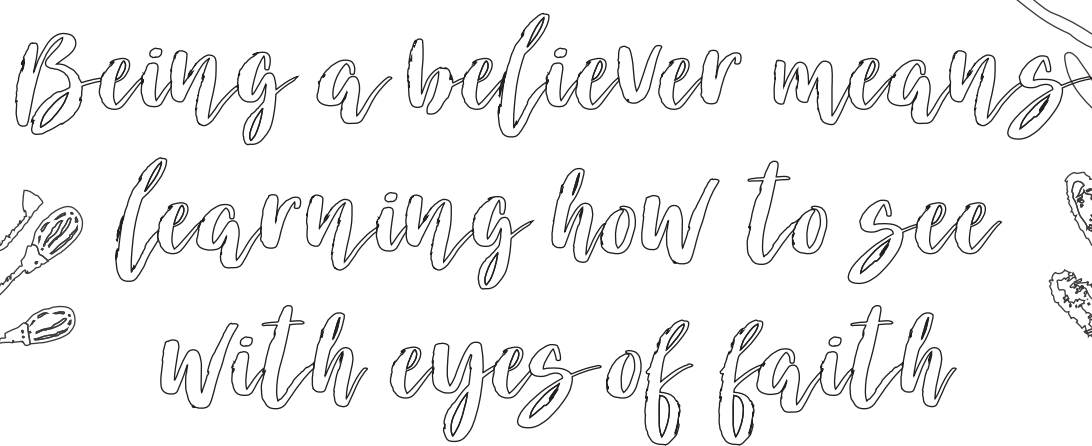 Being a believer means
learning how to see
with eyes of faith